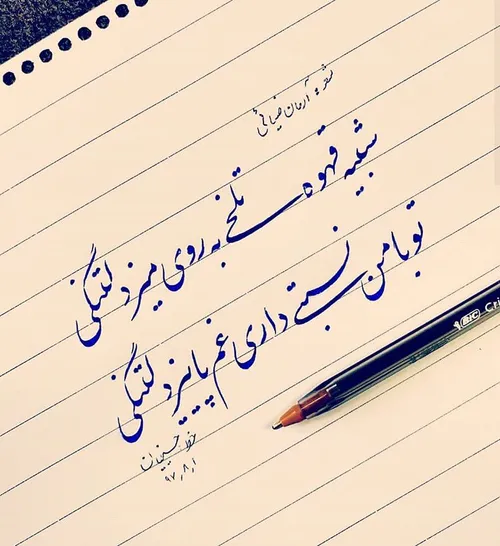 شعر: آرمان ضیائی
شبیه قهوه تلخی به روی میز دلتنگی
تو با من نسبتی داری غم پاییز دلتنگی
خط حسینخان
۹۷,۸,۱
BIC Cri